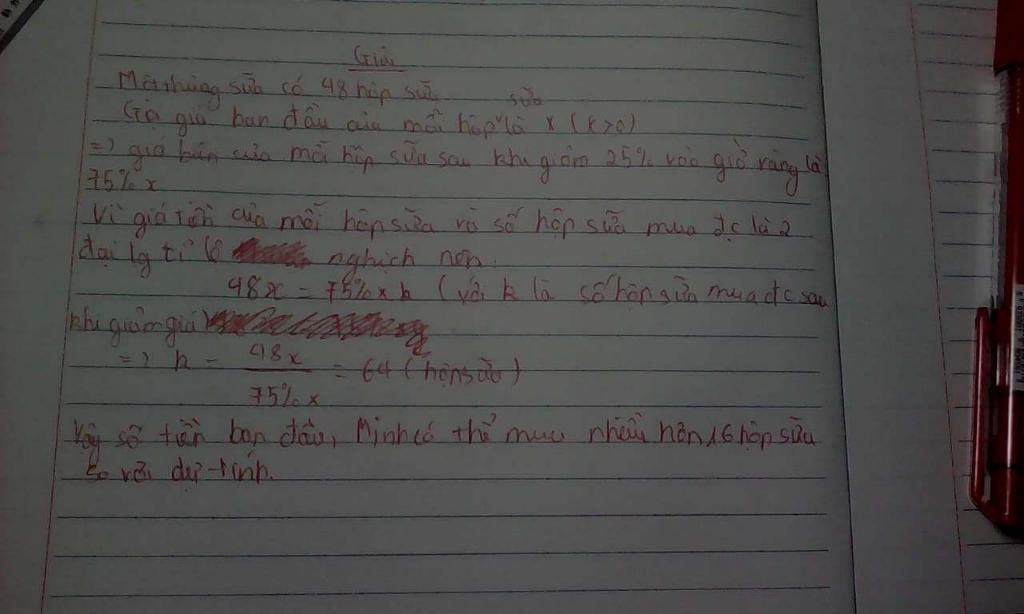 Giải
Một thùng sữa có 48 hộp sữa
sữa
Gọi giá ban đầu của mỗi hộp là x (x>0)
=) giá bán của mỗi hộp sữa sau khi giảm 25% vào giờ vàng là
75% x
Vì giá tiền của mỗi hộp sữa và số hộp sữa mua đc là 2
đại lg tỉ lệ nghịch nên:
48x = 75% x k (với k là số hộp sữa mua đc sau
khi giảm giá)
=) k = 48x / 75% x = 64 (hộp sữa)
Vậy số tiền ban đầu, Minh có thể mua nhiều hơn 16 hộp sữa
so với dự tính.